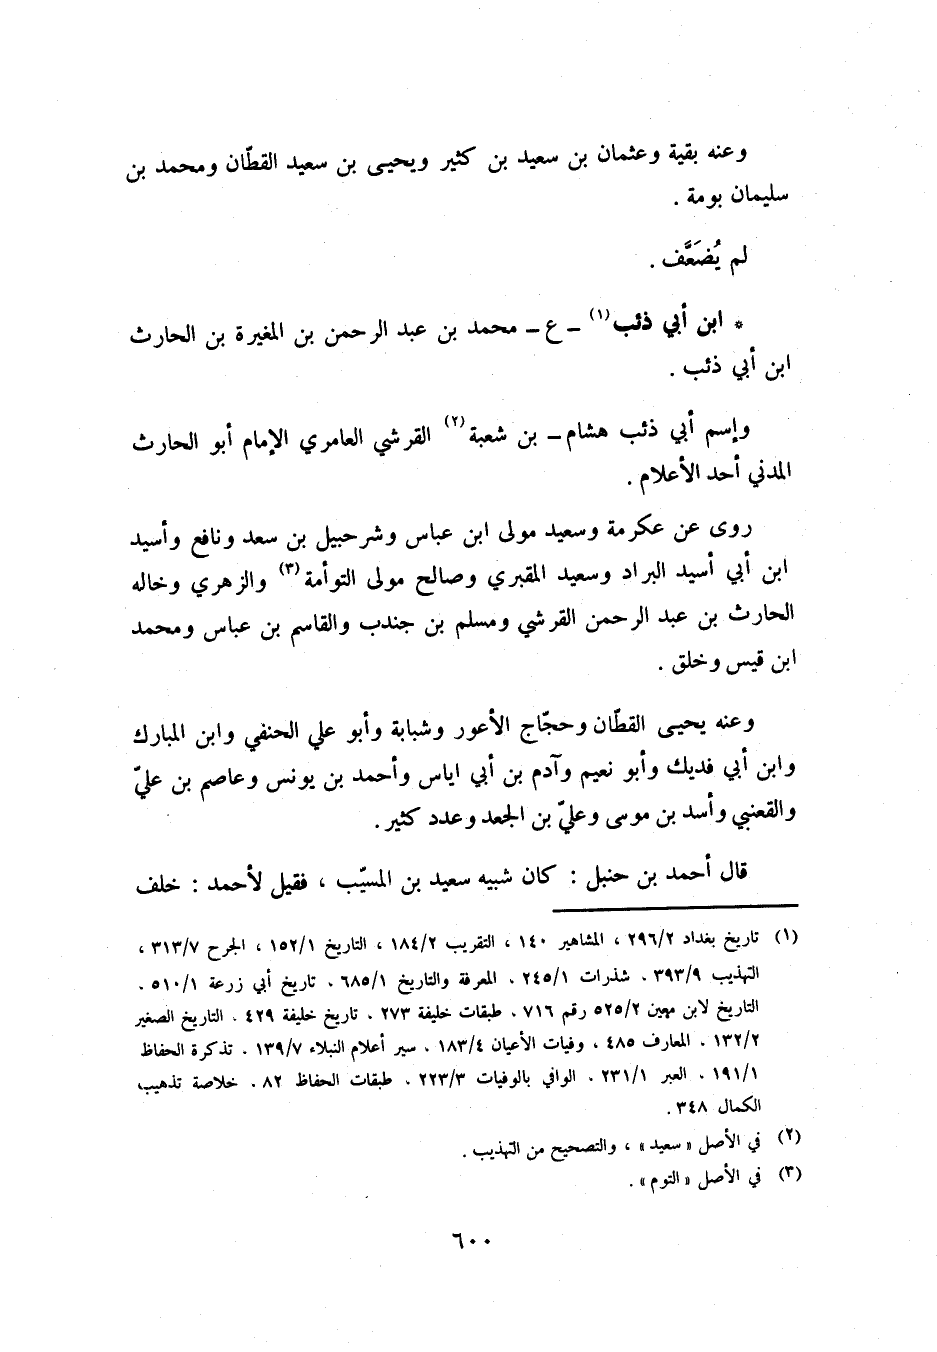 وعنه بقية وعثمان بن سعيد بن كثير ويحيى بن سعيد القطّان ومحمد بن
سليمان بومة .
لم يُضَعَّف .
* ابن أبي ذئب(١) ـ ع ـ محمد بن عبد الرحمن بن المغيرة بن الحارث
ابن أبي ذئب .
وإسم أبي ذئب هشام ـ بن شعبة(٢) القرشي العامري الإمام أبو الحارث
المدني أحد الأعلام .
روى عن عكرمة وسعيد مولى ابن عباس وشرحبيل بن سعد ونافع وأسيد
ابن أبي أسيد البراد وسعيد المقبري وصالح مولى التوأمة(٣) والزهري وخاله
الحارث بن عبد الرحمن القرشي ومسلم بن جندب والقاسم بن عباس ومحمد
ابن قيس وخلق .
وعنه يحيى القطّان وحجّاج الأعور وشبابة وأبو علي الحنفي وابن المبارك
وابن أبي فديك وأبو نعيم وآدم بن أبي اياس وأحمد بن يونس وعاصم بن عليّ
والقعنبي وأسد بن موسى وعليّ بن الجعد وعدد كثير .
قال أحمد بن حنبل : كان شبيه سعيد بن المسيّب ، فقيل لأحمد : خلف
(١) تاريخ بغداد ٢٩٦/٢ ، المشاهير ١٤٠ ، التقريب ١٨٤/٢ ، التاريخ ١٥٢/١ ، الجرح ٣١٣/٧ ،
التهذيب ٣٩٣/٩ . شذرات ٢٤٥/١ . المعرفة والتاريخ ٦٨٥/١ . تاريخ أبي زرعة ٥١٠/١ .
التاريخ لابن معين ٥٢٥/٢ رقم ٧١٦ . طبقات خليفة ٢٧٣ . تاريخ خليفة ٤٢٩ . التاريخ الصغير
١٣٢/٢ . المعارف ٤٨٥ ، وفيات الأعيان ١٨٣/٤ . سير أعلام النبلاء ١٣٩/٧ . تذكرة الحفاظ
١٩١/١ . العبر ٢٣١/١ . الوافي بالوفيات ٢٢٣/٣ . طبقات الحفاظ ٨٢ . خلاصة تذهيب
الكمال ٣٤٨ .
(٢) في الأصل « سعيد » ، والتصحيح من التهذيب .
(٣) في الأصل « التوم » .
٦٠٠